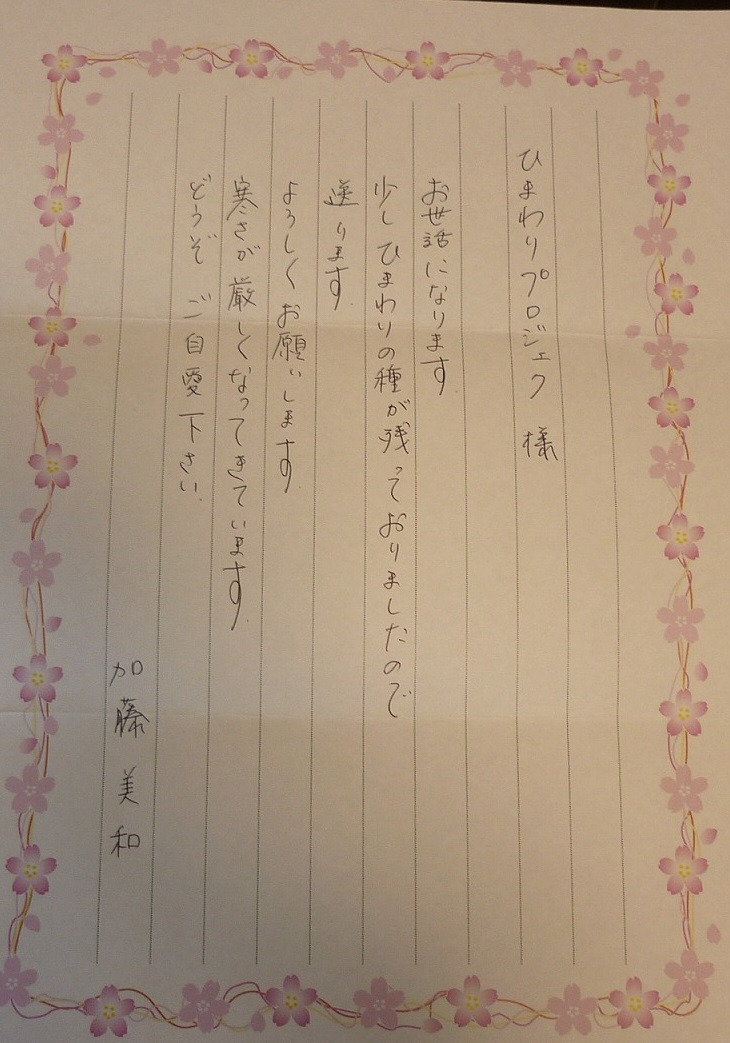 ひまわりプロジェク 様
お世話になります
少しひまわりの種が残っておりましたので
送ります
よろしくお願いします
寒さが厳しくなってきています
どうぞ ご自愛下さい
加藤美和